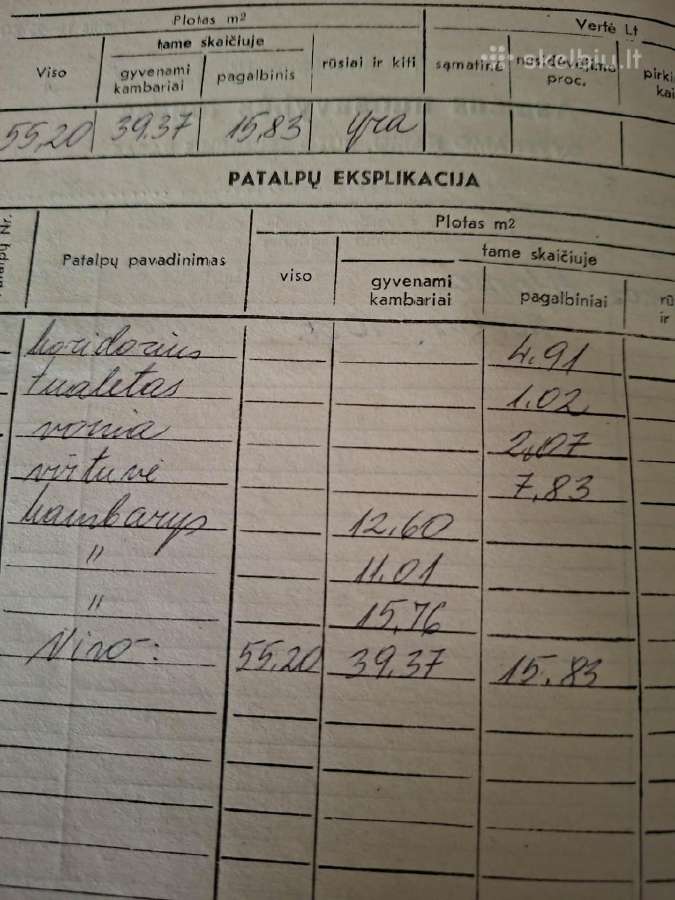 Plotas m2
Vertė Lt
skelbiu.lt
tame skaičiuje
Viso gyvenami kambariai pagalbinis rūsiai ir kiti sąmatinė nusidėvėjimo proc. pirki kai
55,20 39.37 15,83 yra
PATALPŲ EKSPLIKACIJA
Patalpų Nr.
Plotas m2
Patalpų pavadinimas viso tame skaičiuje
gyvenami kambariai pagalbiniai rū ir
koridorius 4.91
tualetas 1.02
vonia 2,07
virtuvė 7,83
kambarys 12.60
" 11.01
" 15,76
Viso: 55.20 39.37 15.83